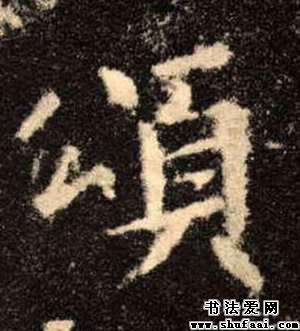 頌
书法爱网
www.shufaai.com